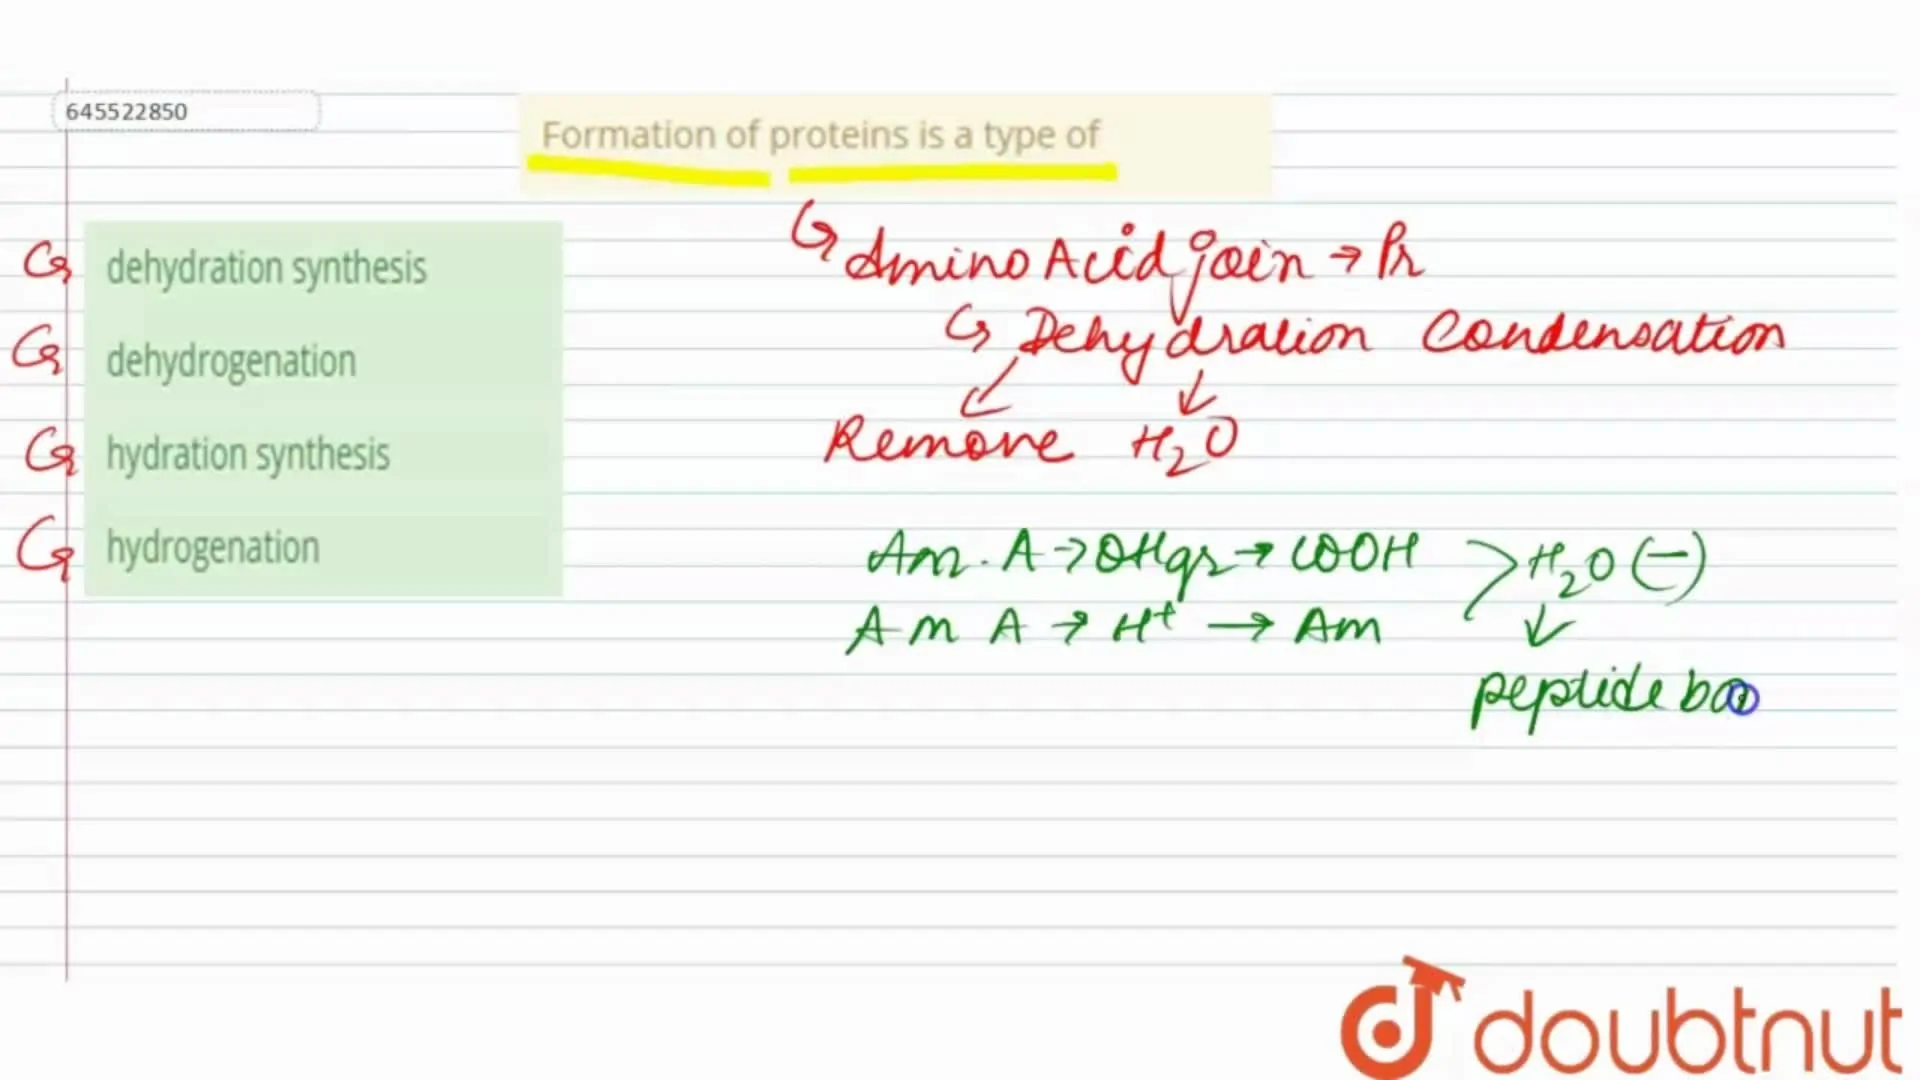 645522850
Formation of proteins is a type of
dehydration synthesis
dehydrogenation
hydration synthesis
hydrogenation
Amino Acid join → Pr
Dehydration Condensation
Remove H₂O
Am. A → OH gr → COOH
H₂O (-)
Am A → H⁺ → Am
peptide bo
doubtnut